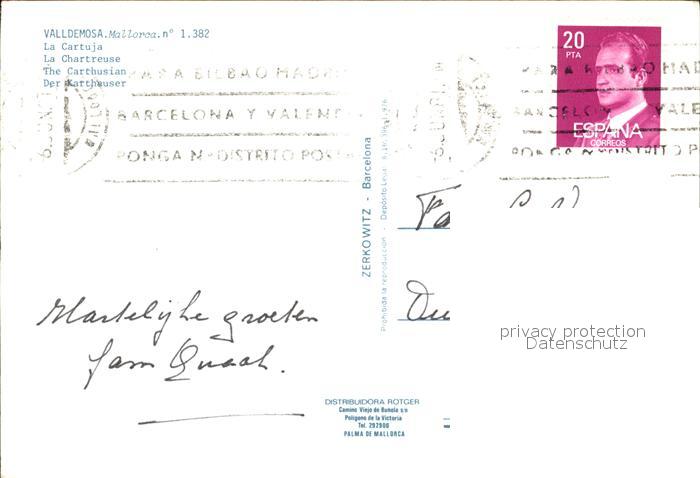 VALLDEMOSA.Mallorca.nº 1.382
La Cartuja
La Chartreuse
The Carthusian
Der Karthäuser
PARA BILBAO MADRI
BARCELONA Y VALEN
PONGA Nº DISTRITO POS
20
PTA
ESPAÑA
CORREOS
BILBAO MAD
BARCELON VALE
PONGA DISTRITO P
ZERKOWITZ - Barcelona
Prohibida la reproducción - Depósito Legal
Fa
Hartelijke groeten
fam Quaak.
privacy protection
Datenschutz
DISTRIBUIDORA ROTGER
Camino Viejo de Buñola s/n
Polígono de la Victoria
Tel. 292900
PALMA DE MALLORCA